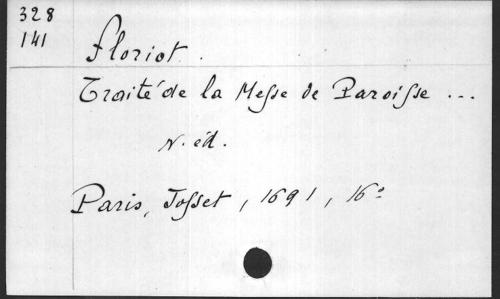 328
141
Floriot.
Traité de la Messe de Paroisse ...
N. éd.
Paris, Josset, 1691, 16°